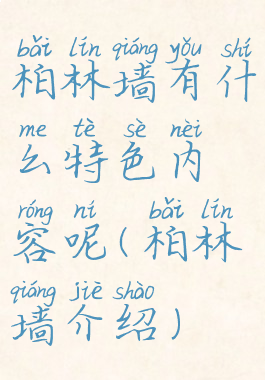 bǎi lín qiáng yǒu shí
柏林墙有什
me tè sè nèi
么特色内
róng ní bǎi lín
容呢(柏林
qiáng jiè shào
墙介绍)